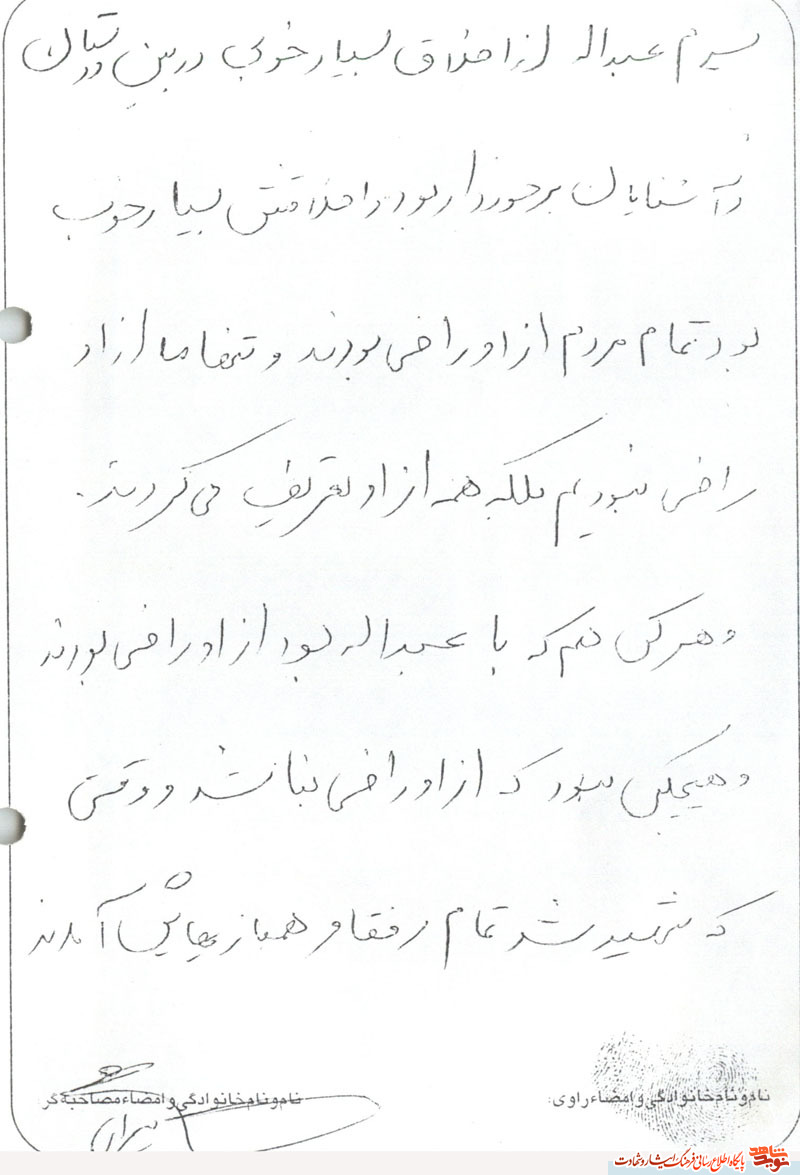 پسرم عبداله از اخلاق بسیار خوبی در بین دوستان
و آشنایان برخوردار بود و اخلاقش بسیار خوب
بود تمام مردم از او راضی بودند و تنها ما از او
راضی نبودیم بلکه همه از او تعریف می کردند.
و هر کس هم که با عبداله بود از او راضی بودند
و هیچکس نبود که از او راضی نباشد و وقتی
که شهید شد تمام رفقا و همبازیهایش آمدند
نام و نام خانوادگی و امضاء راوی:
نام و نام خانوادگی و امضاء مصاحبه گر
نوید شاهد پایگاه اطلاع رسانی فرهنگ ایثار و شهادت